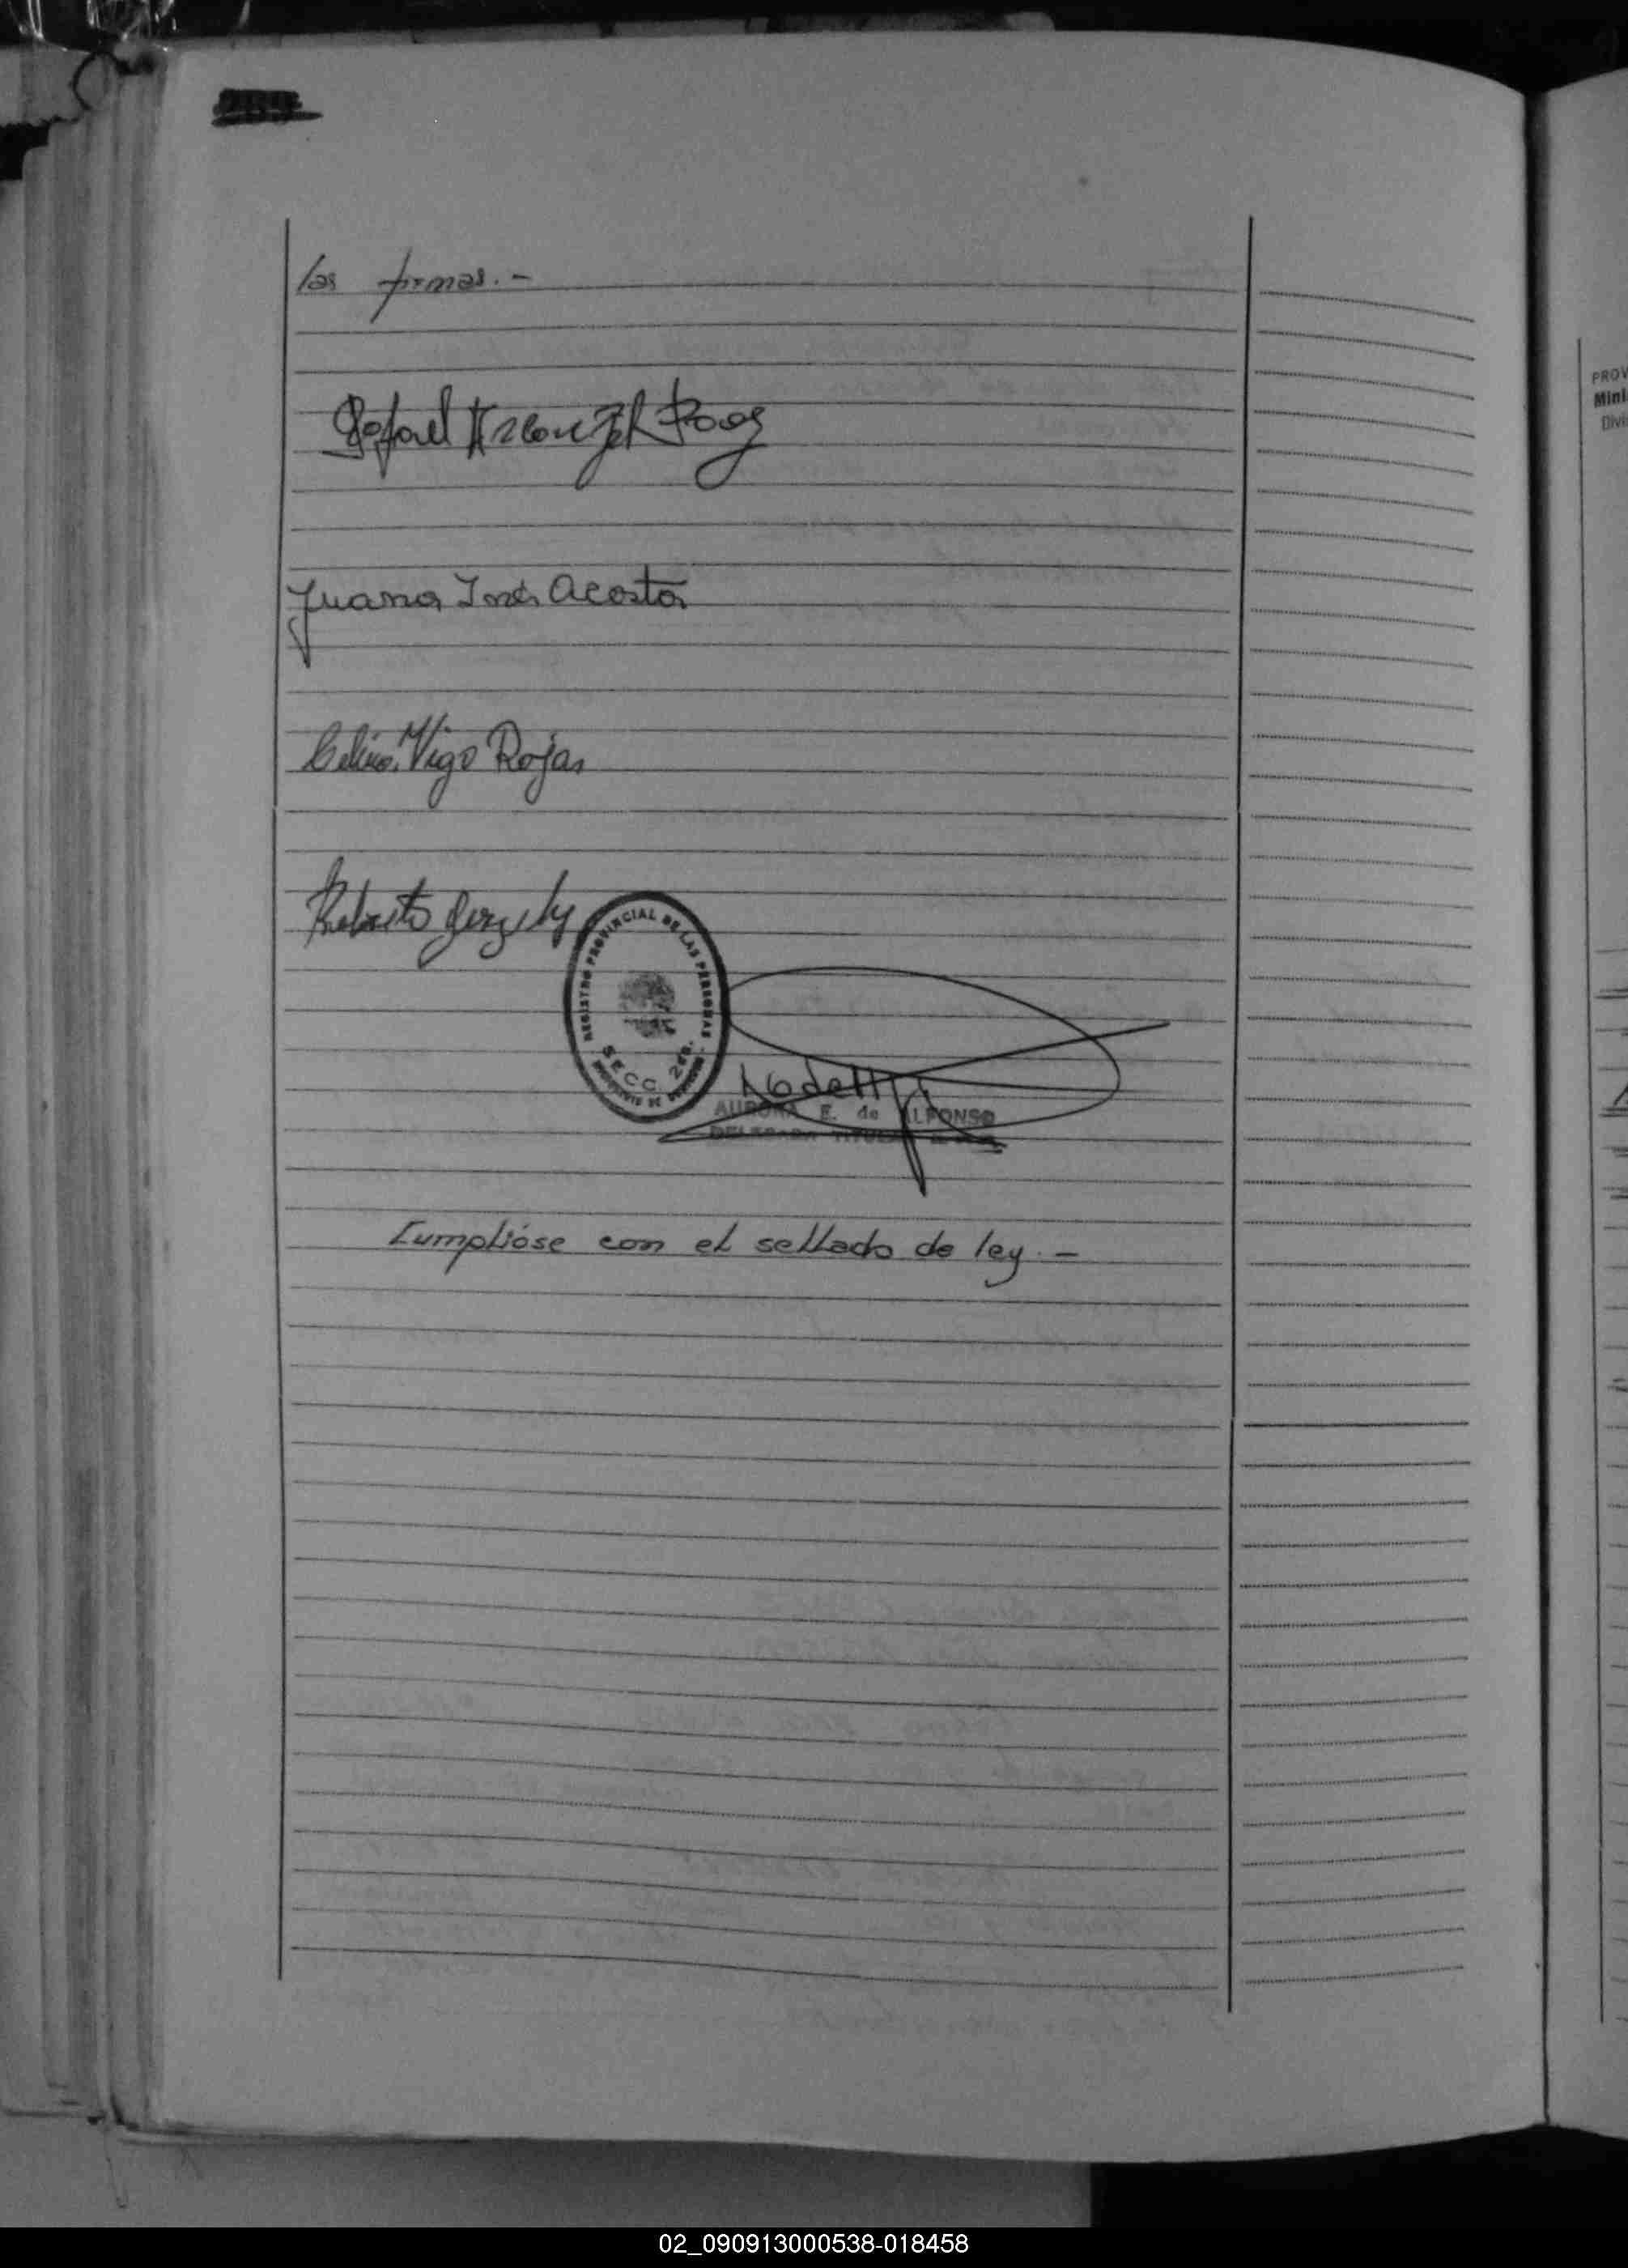 las firmas.-
Rafael
Juana Inés Acosta
Vigo Rojas
Roberto
REGISTRO PROVINCIAL DE LAS PERSONAS
SECC. 2da.
AURORA E. de ALFONSO
DELEGADA TITULAR
Cumplióse con el sellado de ley.-
PROV
Mini
Divi
02_090913000538-018458